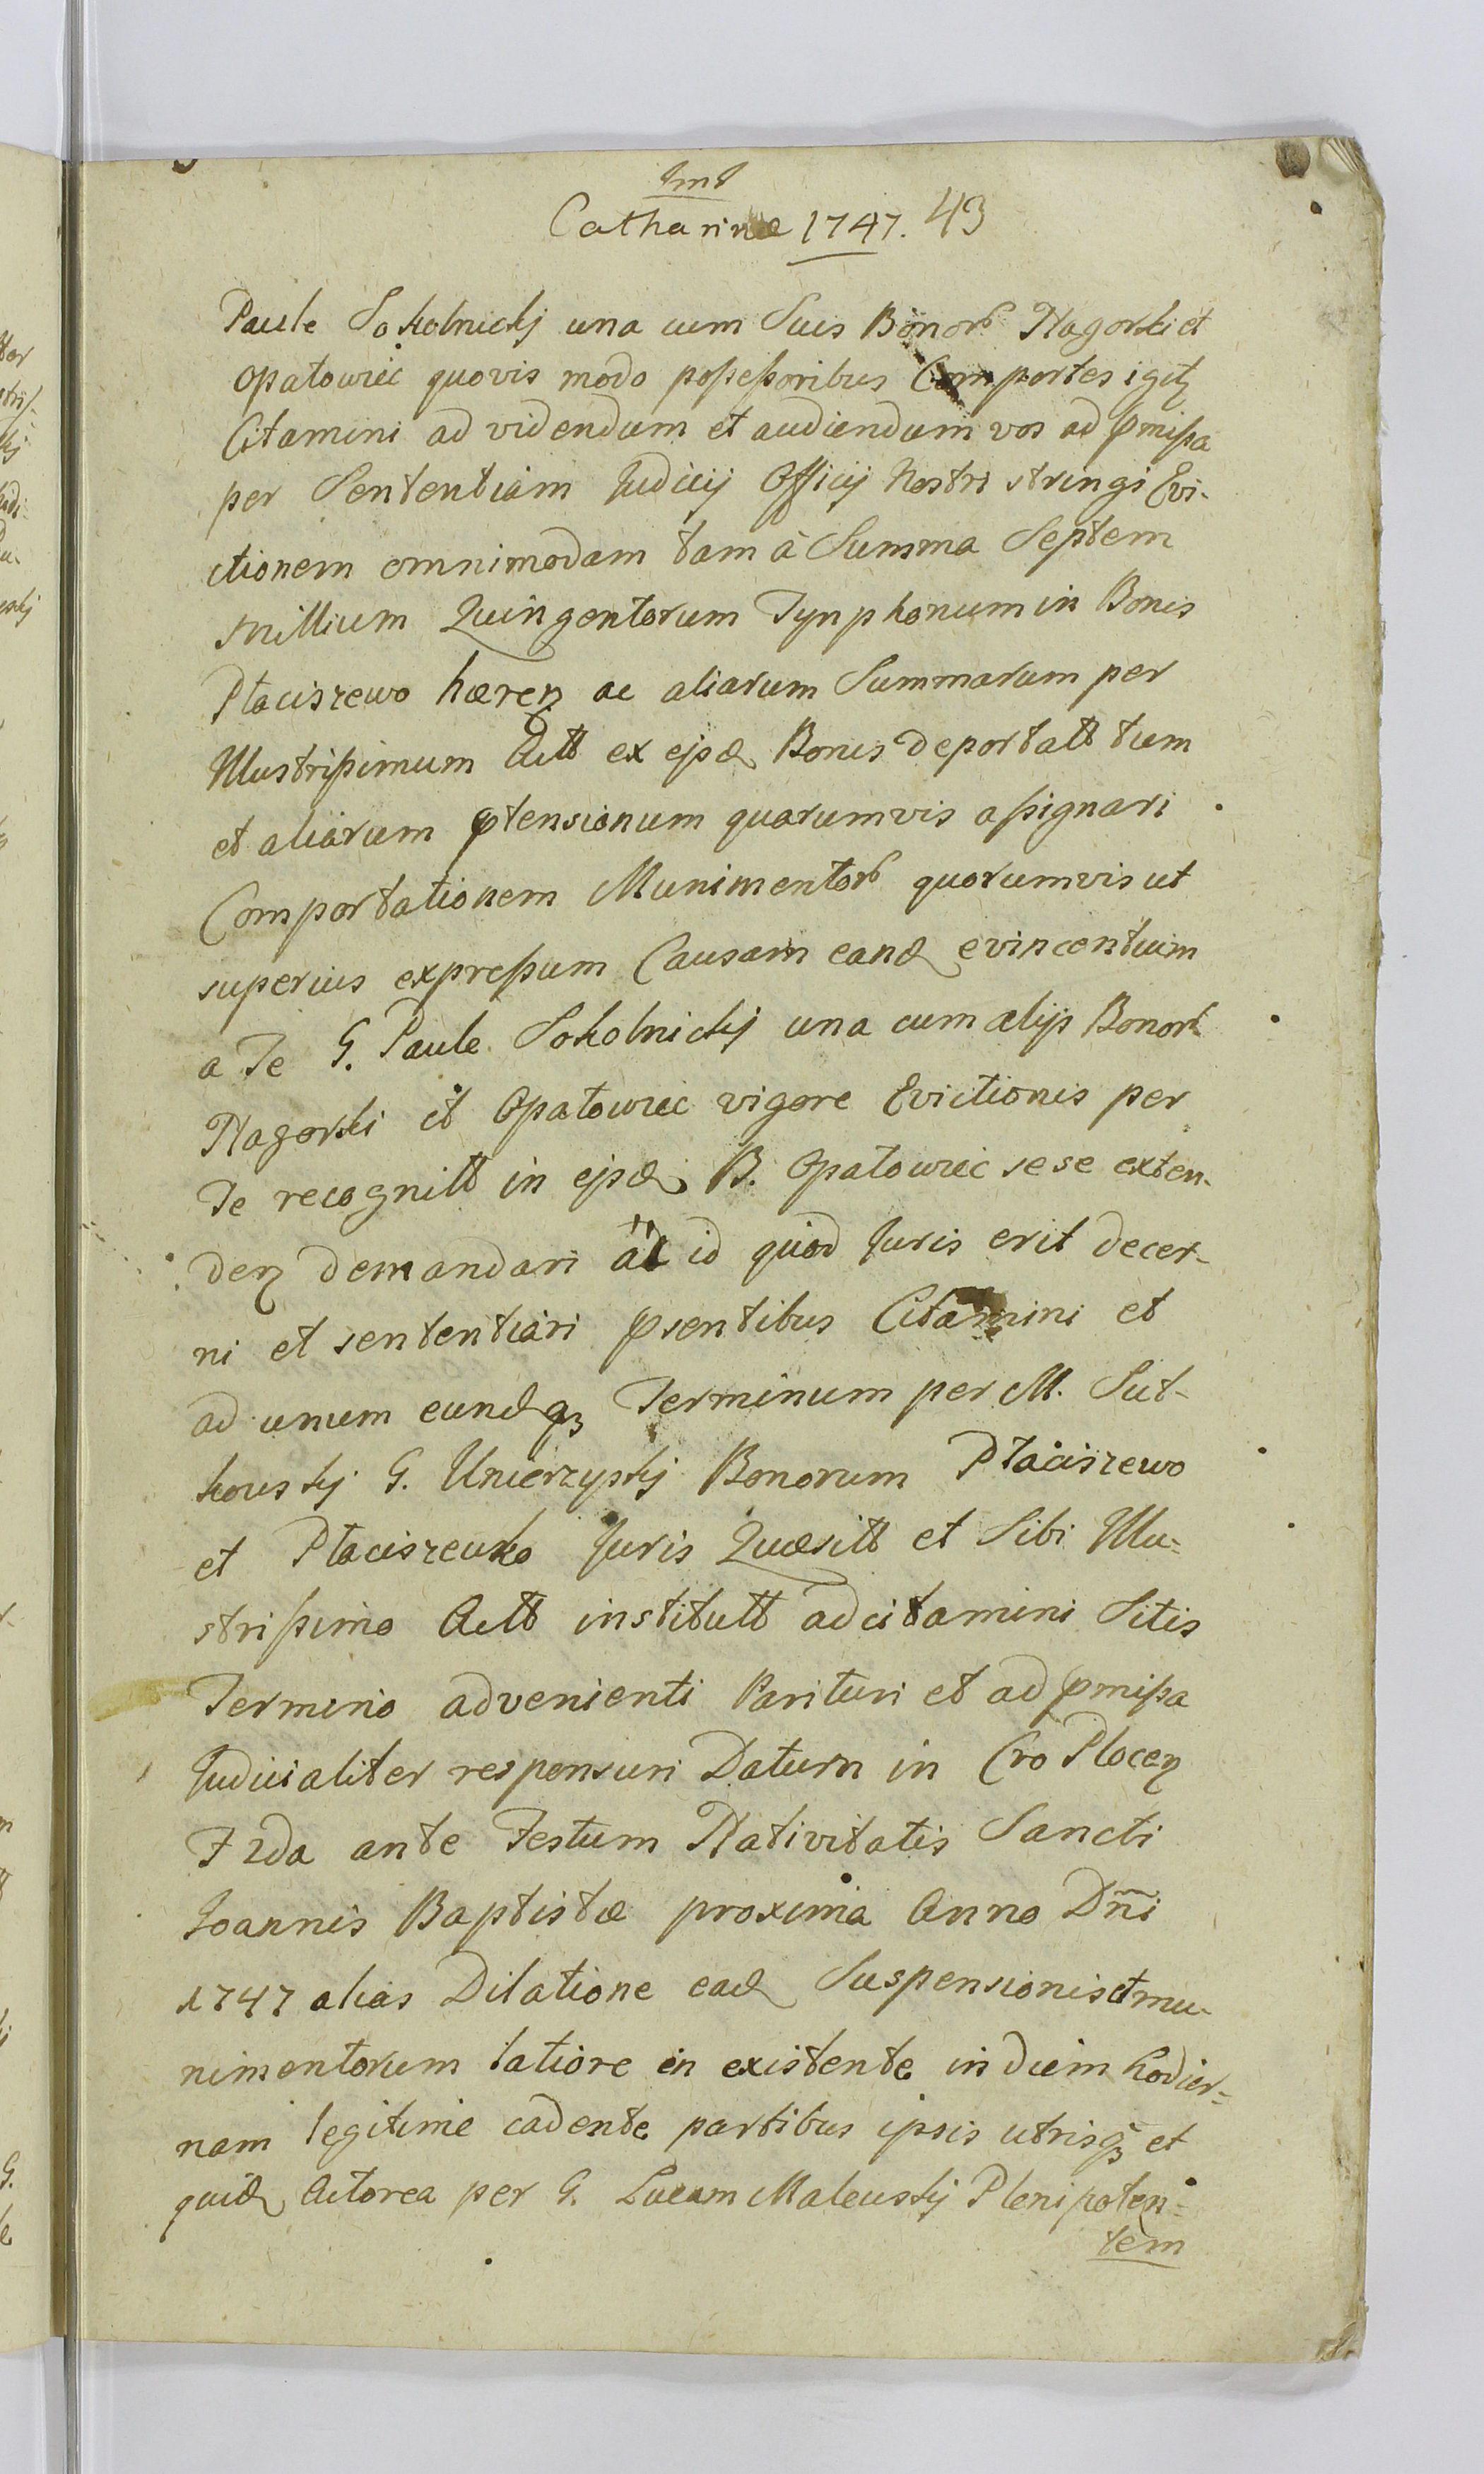 Catharinæ 1747. 43
Paule Sokolnickj una cum Suis Bonorū Nagorki et
Opatowiec quovis modo poßeßoribus Comportes igitʒ
Citamini ad videndum et audiendum vos ad pmißa
per Sententiam Judicij Officij Nostri stringi Evi-
ctionem omnimodam tam à Summa Septem
Millium Quingentorum Tynphonum in Bonis
Płaciszewo hæreƞ ac aliarum Summarum per
Illustrißimum Actt ex ejsd Bonis deportatt tum
et aliarum ptensionum quarumvis aßignari
Comportationem Munimentorū quorumvis ut
superius expreßum Causam eand evincentium
a Te G. Paule Sokolnickj una cum alijs Bonorū
Nagorki et Opatowiec vigore Evictionis per
Te recognitt in ejsd B. Opatowiec sese exten-
deƞ demandari ac id quod Juris erit decer-
ni et sententiari psentibus Citamini et
ad unum eundqʒ Terminum per M. Sut-
kowskj G. Unierzyskj Bonorum Płaciszewo
et Płaciszewko Juris Quæsitt et Sibi Illu-
strißimo Actt institutt adcitamini Sitis
Termino advenienti Parituri et ad pmißa
Judicialiter responsuri Datum in Cro Ploceƞ
F 2da ante Festum Nativitatis Sancti
Joannis Baptistæ proxima Anno Dñi
1747 alias Dilatione ead Suspensionis et mu-
nimentorum latiore in existente in diem hodier-
nam legitime cadente partibus ipsis utrisqʒ et
quid Actorea per G. Lucam Malewskj Plenipoten-
tem